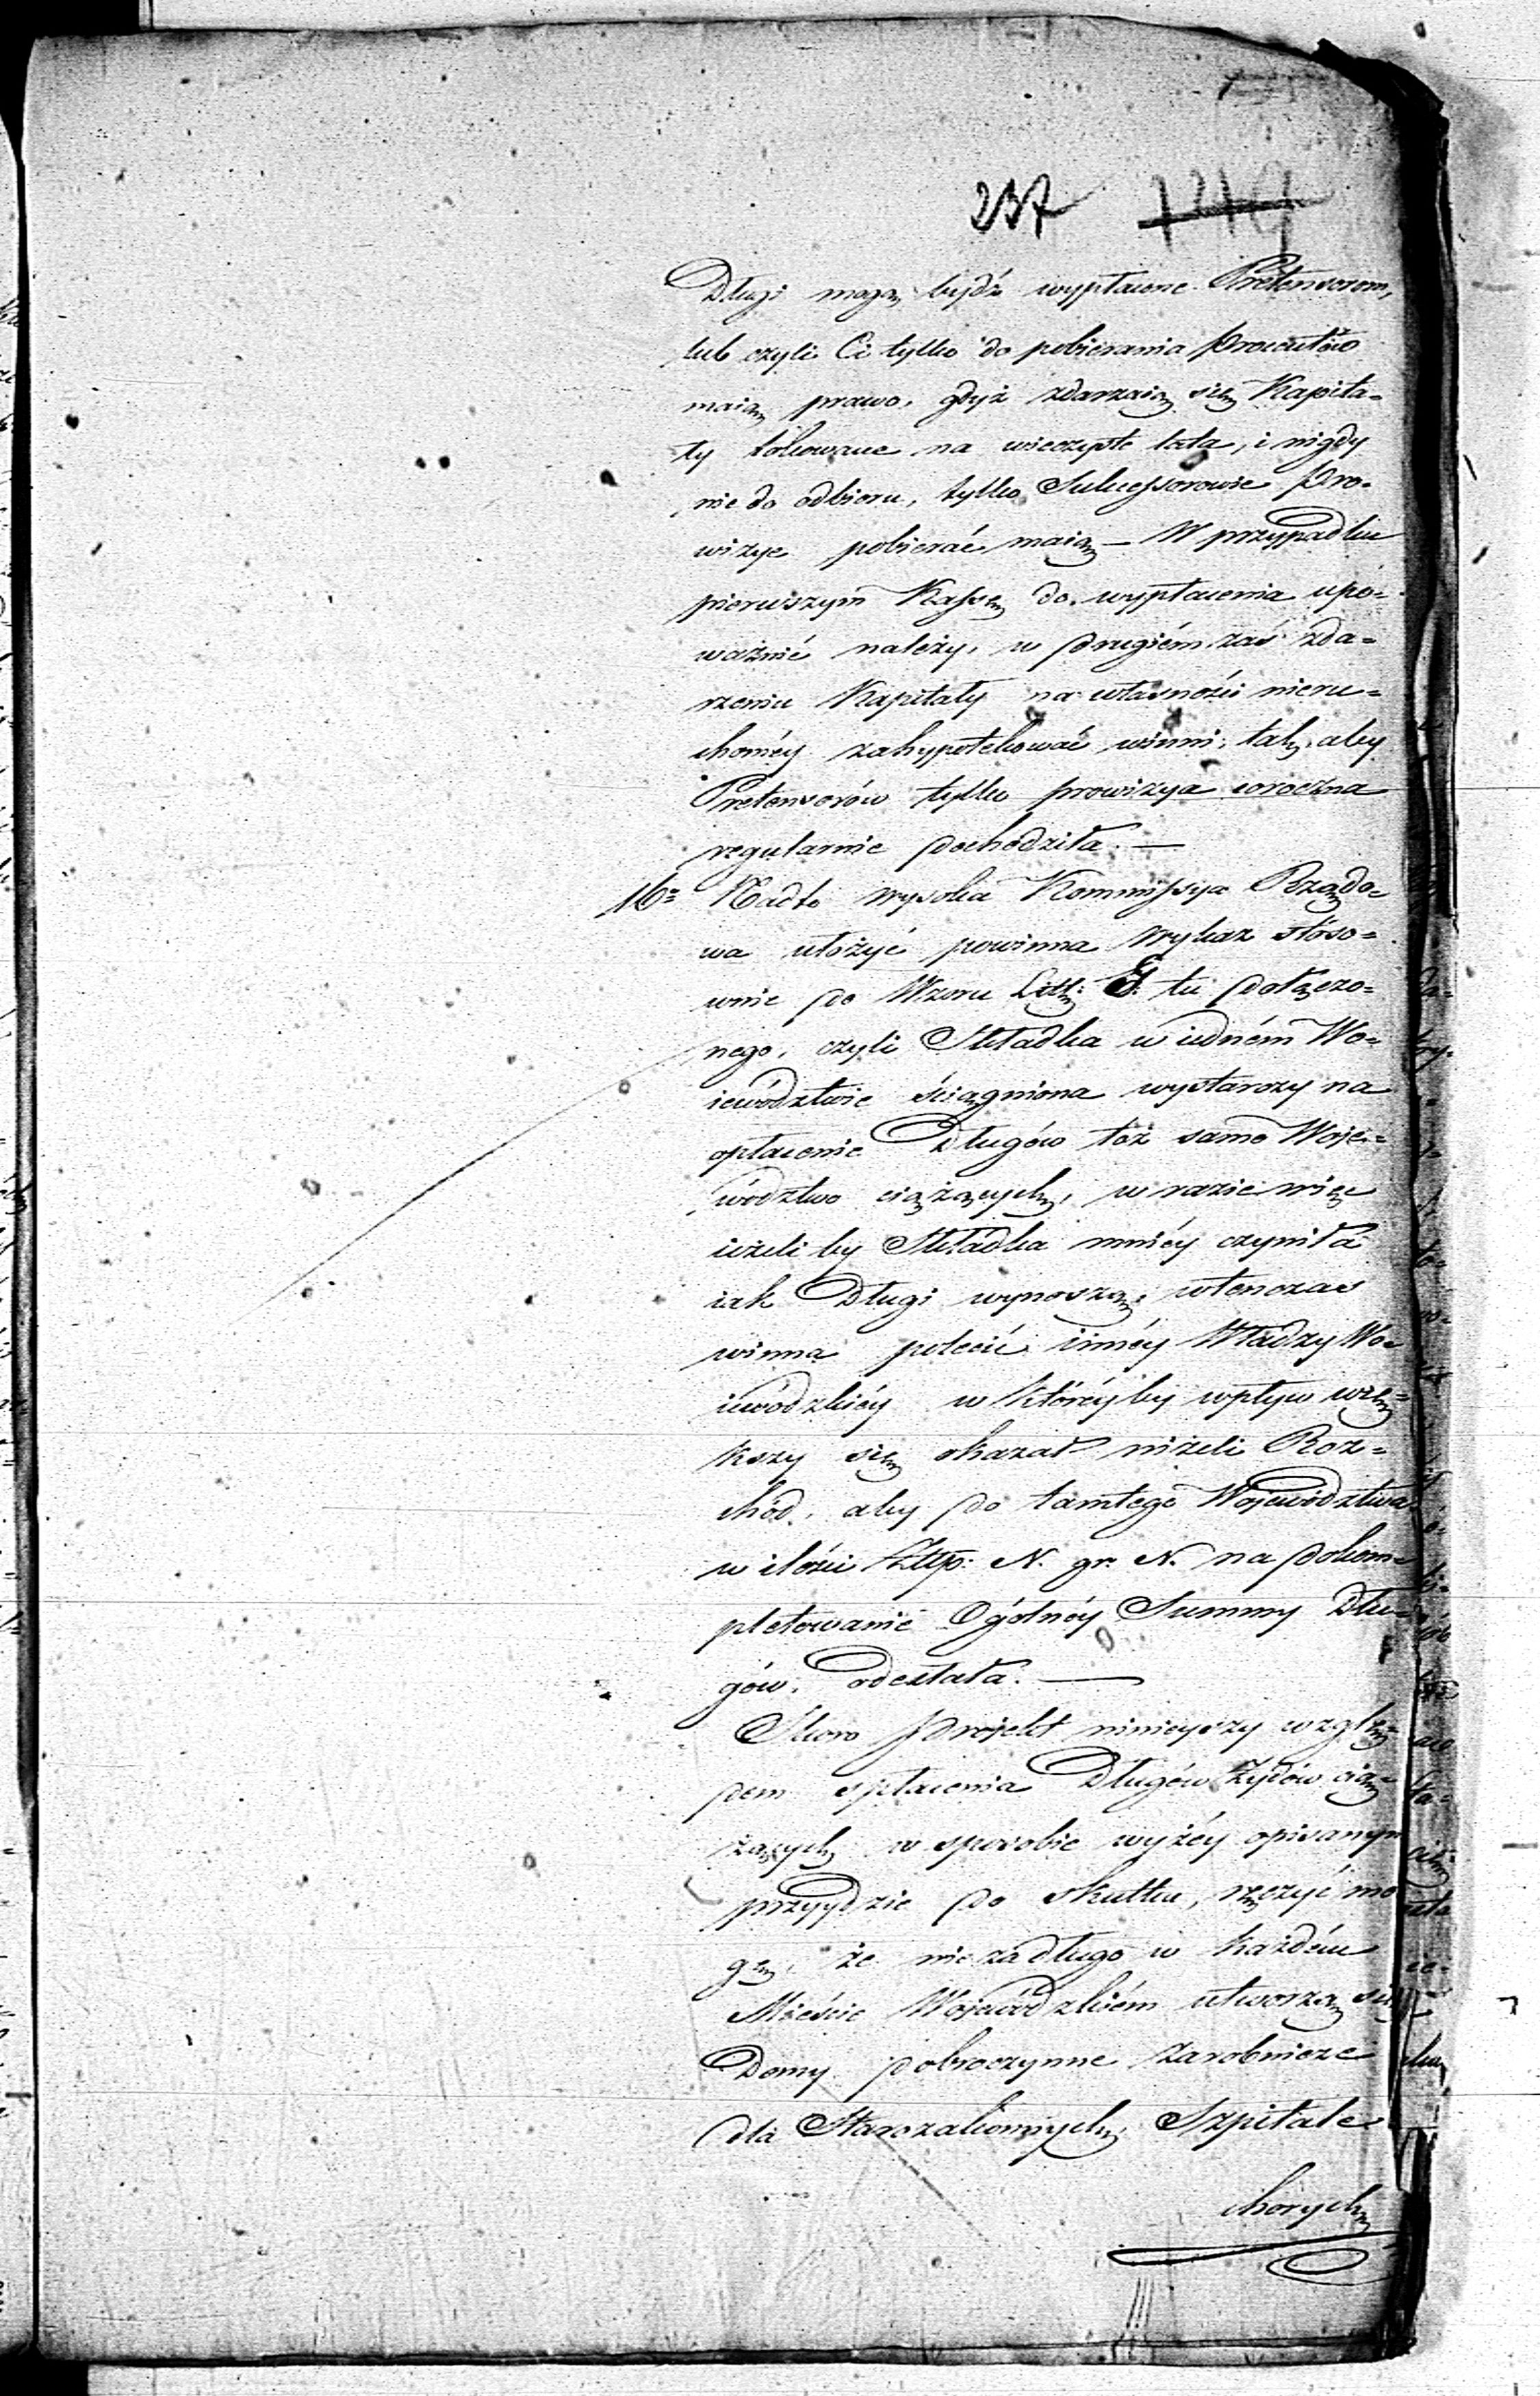 237 749
Długi mogą bydź wypłacone Pretensorom,
lub czyli Ci tylko do pobierania Procentów
maią prawo, gdyż zdarzaią się Kapita=
ły lokowane na wieczyste lata, i nigdy
nie do odbioru, tylko Sukcessorowie Pro=
wizye pobierać maią – W przypadku
pierwszym Kassę do wypłacenia upo=
ważnić należy, w drugiém zaś zda=
rzeniu Kapitały na własności nieru=
choméy zahypotekować winni, tak, aby
Pretensorów tylko prowizya coroczna
regularnie dochodziła. —
16o Nadto wysoka Kommissya Rządo=
wa ułożyć powinna wykaz stóso=
wnie do Wzoru Litt: E. tu dołączo=
nego, czyli Składka w iedném Wo=
iewództwie ściągniona wystarczy na
opłacenie Długów toż samo Woje=
wództwo ciążących, w razie więc
ieżeli by Składka mniéy czyniła
iak Długi wynoszą, wtenczas
winna polecić innéy Władzy Wo=
iewódzkiéy w któréyby wpływ wię=
kszy się okazał niżeli Roz=
chód, aby do tamtego Województwa
w ilości Złtp: N. gr. N. na dokom=
pletowanie Ogólnéy Summy Dłu=
gów, odesłała. —
Skoro Projekt ninieyszy wzglę=
dem spłacenia Długów Żydów cią=
żących w sposobie wyżéy opisanym
przyydzie do skutku, ręczyć mo
gę, że niezadługo w każdém
Mieście Wojewódzkiém utworzą się
Domy dobroczynne zarobnicze
dla Starozakonnych, Szpitale
chorych